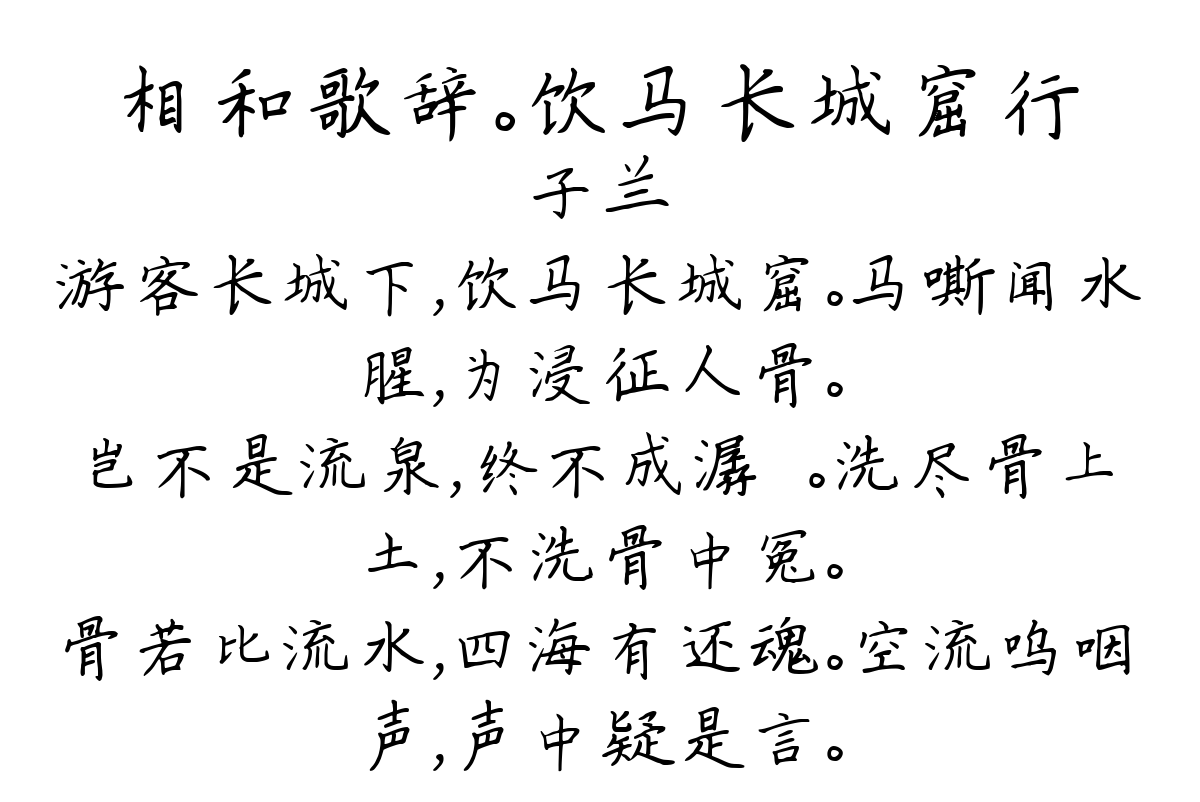 相和歌辞。饮马长城窟行
子兰
游客长城下,饮马长城窟。马嘶闻水
腥,为浸征人骨。
岂不是流泉,终不成潺 。洗尽骨上
土,不洗骨中冤。
骨若比流水,四海有还魂。空流呜咽
声,声中疑是言。